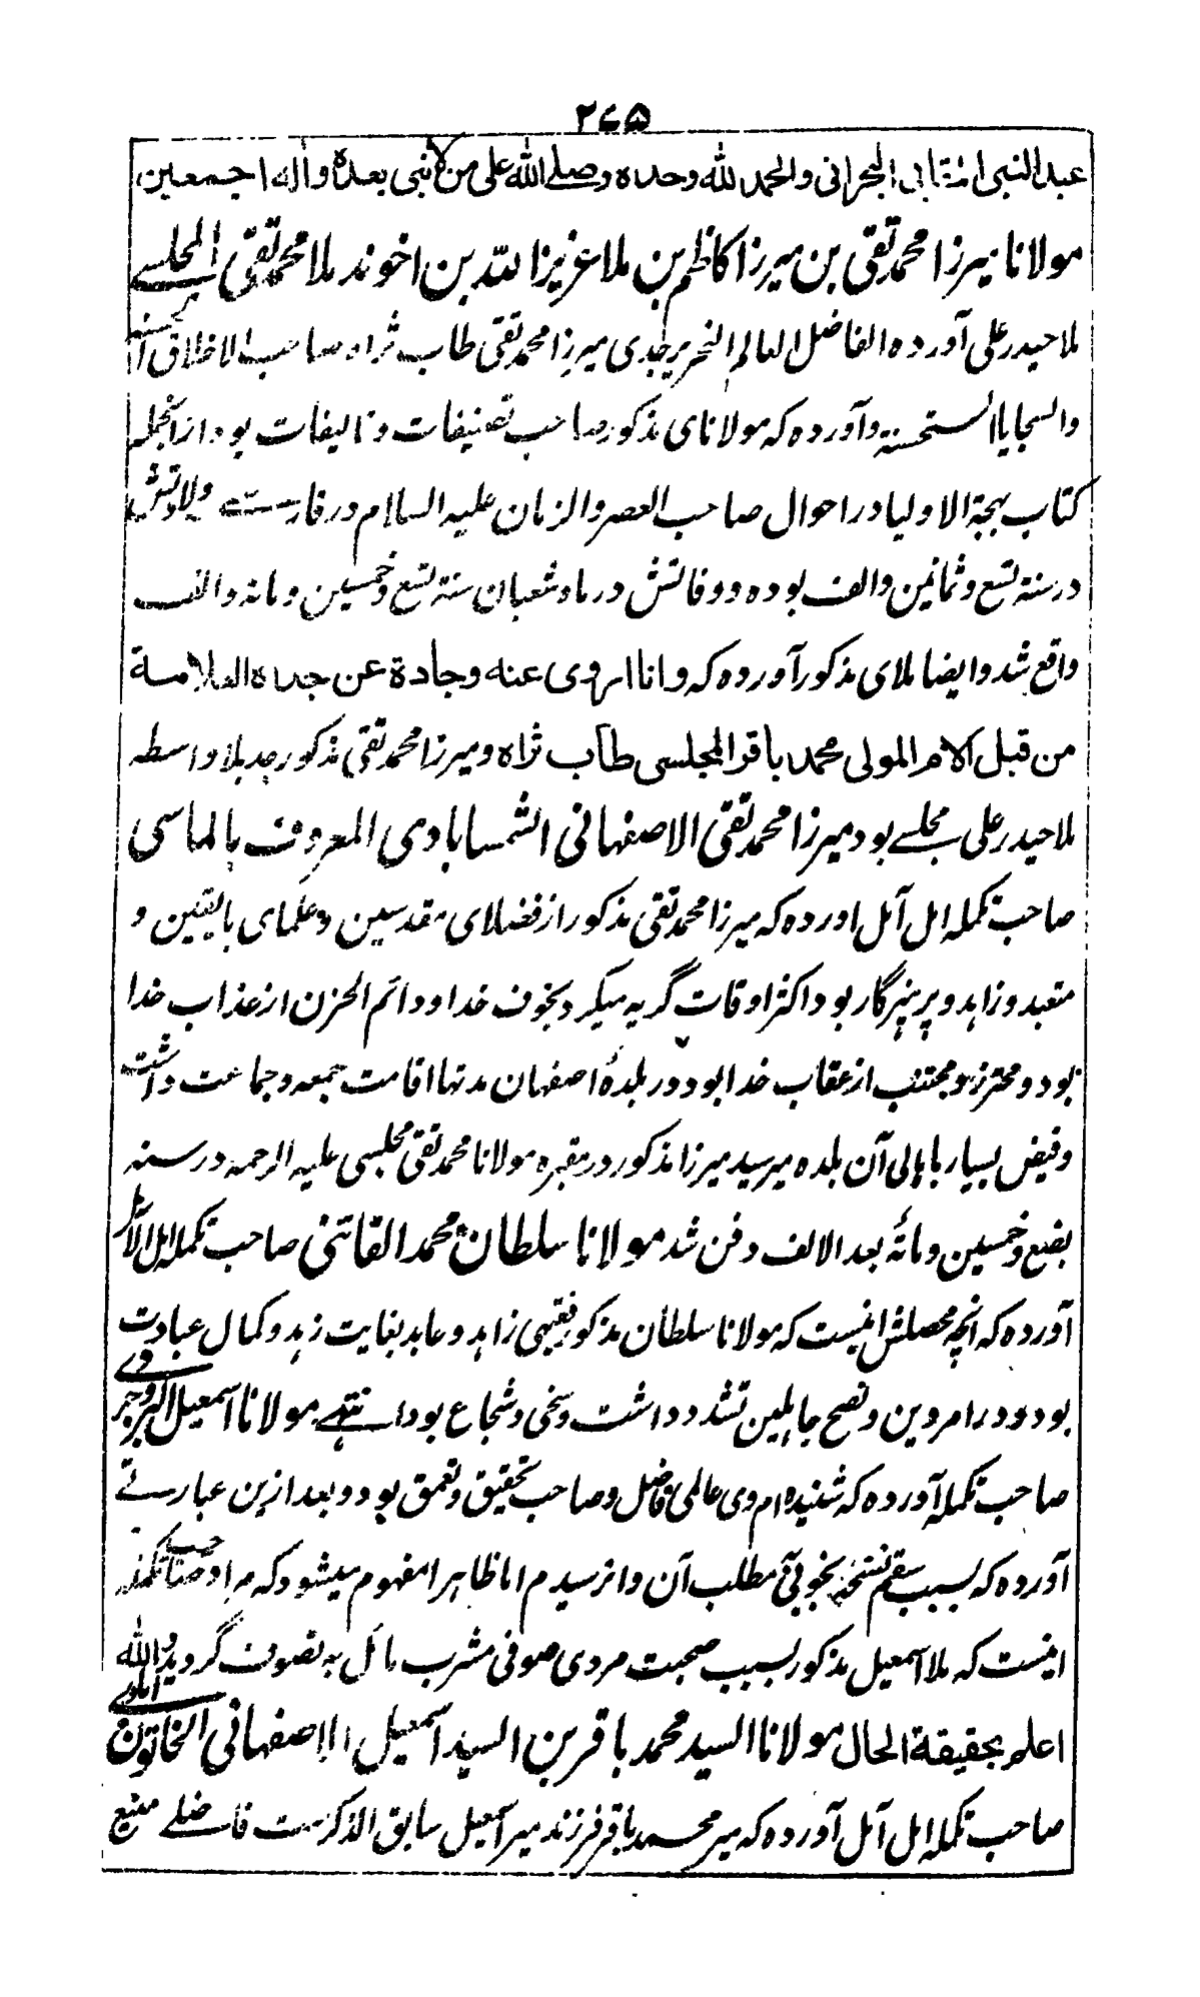 ۲۷۵
عبد النبی البحرانی والحمد لله وحده وصلے الله علی من لا نبی بعده واله اجمعین
مولانا میرزا محمد تقی بن میرزا کاظم بن ملا عزیز الله بن اخوند ملا محمد تقی المجلسے
ملا حیدر علی آورده الفاضل العالم النحریر جدی میرزا محمد تقی طاب ثراه صاحب الاخلاق
والسجایا المستحسنة وآورده که مولانای مذکور صاحب تصنیفات و تالیفات بود ازانجمله
کتاب بهجة الاولیا در احوال صاحب العصر والزمان علیه السلام در فارسی ست ولادتش
در سنة تسع و ثمانین والف بوده و وفاتش در ماه شعبان سنة تسع و خمسین و مائه والف
واقع شد وایضا ملای مذکور آورده که وانا اروی عنه وجادة عن جده العلامة
من قبل الام المولی محمد باقر المجلسی طاب ثراه و میرزا محمد تقی مذکور جد بلا واسطه
ملا حیدر علی مجلسے بود میرزا محمد تقی الاصفهانی الشمسابادی المعروف بالماسی
صاحب تکمله امل آمل اورده که میرزا محمد تقی مذکور از فضلای مقدسین و علمای بالیقین و
متعبد و زاهد و پرهیزگار بود اکثر اوقات گریه میکرد بخوف خدا و دائم الحزن از عذاب خدا
بود و محترز و مجتنب از عقاب خدا بود و در بلدهٔ اصفهان مدتها اقامت جمعه و جماعت داشت
و فیض بسیار باهالی آن بلده میرسید میرزا مذکور در مقبره مولانا محمد تقی مجلسی علیه الرحمه در سنه
بضع و خمسین و مائة بعد الالف دفن شد مولانا سلطان محمد القائنی صاحب تکمله امل الآمل
آورده که انچه محصلش اینست که مولانا سلطان مذکور فقیهی زاهد و عابد بغایت زهد و کمال عبادت
بود و در امر دین و نصح جاهلین تشدد داشت و سخی و شجاع بود انتهے مولانا اسمعیل البروجردے
صاحب تکمله آورده که شنیده ام وی عالمی فاضل و صاحب تحقیق و تعمق بود و بعد ازین عبارتے
آورده که بسبب سقم نسخه بخوبی مطلب آن وا نرسیدم اما ظاهرا مفهوم میشود که مراد صاحب تکمله
اینست که ملا اسمعیل مذکور بسبب صحبت مردی صوفی مشرب مائل به تصوف گردید والله
اعلم بحقیقة الحال مولانا السید محمد باقر بن السید اسمعیل الاصفهانی الخاتون آبادے
صاحب تکمله امل آمل آورده که میر محمد باقر فرزند میر اسمعیل سابق الذکرست فاضلے منیع